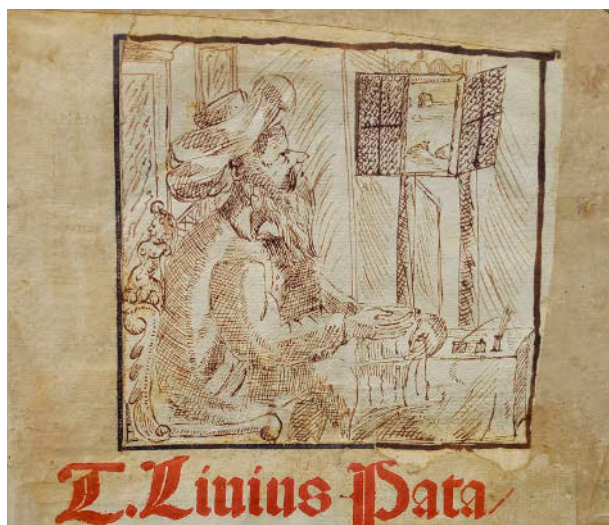 T. Liuius Pata/